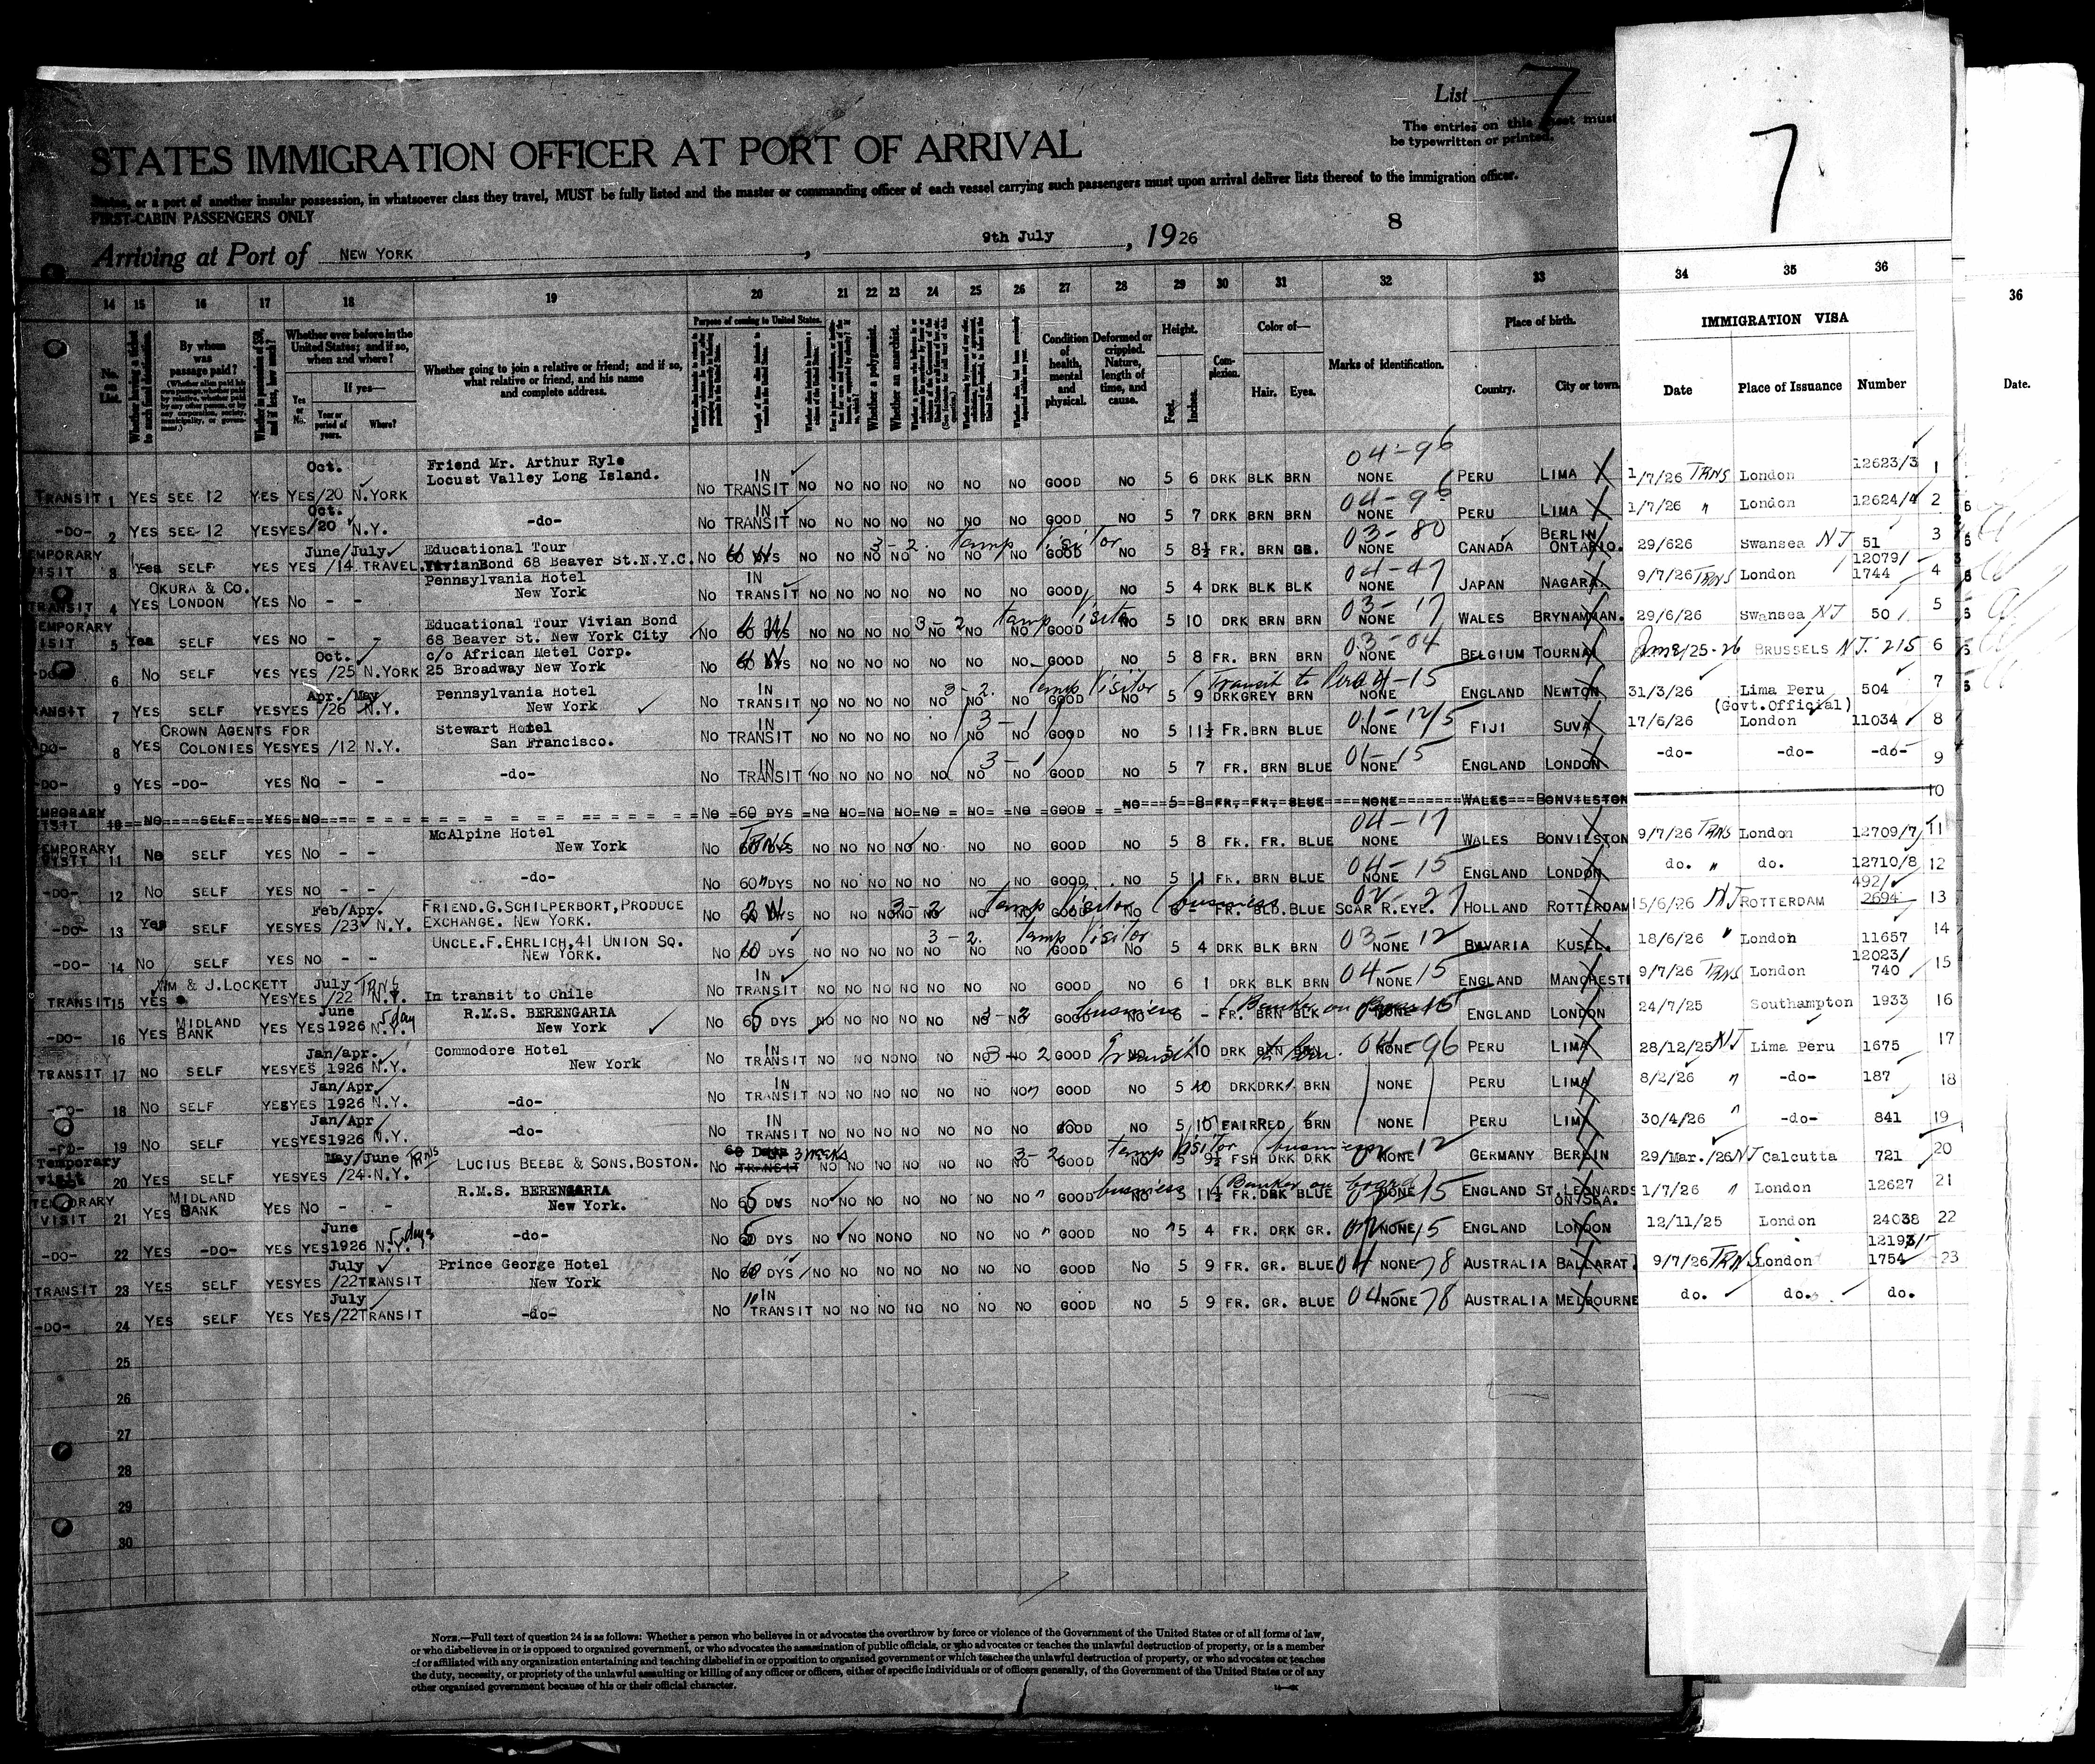 List 7
The entries on this sheet must
be typewritten or printed.
STATES IMMIGRATION OFFICER AT PORT OF ARRIVAL
States, or a port of another insular possession, in whatsoever class they travel, MUST be fully listed and the master or commanding officer of each vessel carrying such passengers must upon arrival deliver lists thereof to the immigration officer.
FIRST-CABIN PASSENGERS ONLY
8
Arriving at Port of NEW YORK, 9th July, 1926
7
14 15 16 17 18 19 20 21 22 23 24 25 26 27 28 29 30 31 32 33 34 35 36
36
No. on List.
Whether having a ticket to such final destination.
By whom was passage paid?
Whether ever before in the United States; and if so, when and where?
Yes or No.
If yes—
Year or period of years.
Where?
Whether going to join a relative or friend; and if so, what relative or friend, and his name and complete address.
Purpose of coming to United States.
Whether a polygamist.
Whether an anarchist.
Condition of health, mental and physical.
Deformed or crippled. Nature, length of time, and cause.
Height.
Feet. Inches.
Complexion.
Color of—
Hair. Eyes.
Marks of identification.
Place of birth.
Country. City or town.
IMMIGRATION VISA
Date Place of Issuance Number
Date.
TRANSIT 1 YES SEE 12 YES YES Oct. /20 N.YORK Friend Mr. Arthur Ryle Locust Valley Long Island. NO IN TRANSIT NO NO NO NO NO NO NO GOOD NO 5 6 DRK BLK BRN 04-96 NONE PERU LIMA 1/7/26 TRNS London 12623/3 1
-DO- 2 YES SEE 12 YES YES Oct. /20 N.Y. -do- NO IN TRANSIT NO NO NO NO NO NO NO GOOD NO 5 7 DRK BRN BRN 04-96 NONE PERU LIMA 1/7/26 " London 12624/4 2
EMPORARY VISIT 3 Yes SELF YES YES June/July /14 TRAVEL. Educational Tour Vivian Bond 68 Beaver St.N.Y.C. NO 60 DYS NO NO NO NO NO NO NO GOOD NO 3-2 Temp Visitor 5 8½ FR. BRN GR. 03-80 NONE CANADA BERLIN ONTARIO. 29/626 Swansea NJ 51 3
TRANSIT 4 YES OKURA & Co. LONDON YES NO - - Pennsylvania Hotel New York NO IN TRANSIT NO NO NO NO NO NO NO GOOD NO 5 4 DRK BLK BLK 04-47 NONE JAPAN NAGARA 9/7/26 TRNS London 12079/1744 4
EMPORARY VISIT 5 Yes SELF YES NO - - Educational Tour Vivian Bond 68 Beaver St. New York City NO 60 DYS NO NO NO NO NO NO NO GOOD NO 3-2 Temp Visitor 5 10 DRK BRN BRN 03-17 NONE WALES BRYNAMMAN. 29/6/26 Swansea NJ 50 5
-DO- 6 NO SELF YES YES Oct. /25 N.YORK c/o African Metel Corp. 25 Broadway New York NO 60 DYS NO NO NO NO NO NO NO GOOD NO 5 8 FR. BRN BRN 03-04 NONE BELGIUM TOURNAI June/25-26 BRUSSELS NJ. 215 6
TRANSIT 7 YES SELF YES YES Apr./May /26 N.Y. Pennsylvania Hotel New York NO IN TRANSIT NO NO NO NO NO NO NO GOOD NO 3-2. Temp Visitor (Transit to Peru 5 9 DRK GREY BRN 04-15 NONE ENGLAND NEWTON 31/3/26 Lima Peru (Govt.Official) 504 7
-DO- 8 YES CROWN AGENTS FOR COLONIES YES YES /12 N.Y. Stewart Hotel San Francisco. NO IN TRANSIT NO NO NO NO NO NO NO GOOD NO (3-1) 5 11½ FR. BRN BLUE 01-12/5 NONE FIJI SUVA 17/6/26 London 11034 8
-DO- 9 YES -DO- YES NO - - -do- NO IN TRANSIT NO NO NO NO NO NO NO GOOD NO 3-1 5 7 FR. BRN BLUE 01-15 NONE ENGLAND LONDON -do- -do- -do- 9
EMPORARY VISIT 10 NO SELF YES NO NO 60 DYS NO NO NO NO NO NO NO GOOD NO 5 8 FR. FR. BLUE NONE WALES BONVILSTON 10
EMPORARY VISIT 11 NO SELF YES NO - - McAlpine Hotel New York NO 60 DYS TRNS NO NO NO NO NO NO NO GOOD NO 5 8 FR. FR. BLUE 04-17 NONE WALES BONVILSTON 9/7/26 TRNS London 12709/7 11
-DO- 12 NO SELF YES NO - - -do- NO 60 DYS NO NO NO NO NO NO NO GOOD NO 5 11 FR. BRN BLUE 04-15 NONE ENGLAND LONDON do. " do. 12710/8 12
-DO- 13 Yes SELF YES YES Feb/Apr. /23 N.Y. FRIEND.G.SCHILPERBORT,PRODUCE EXCHANGE. NEW YORK. NO 60 DYS NO NO NO NO NO NO NO GOOD NO 3-2 Temp Visitor (business 6 - FR. BLD. BLUE SCAR R.EYE. 02-27 HOLLAND ROTTERDAM 15/6/26 NJ ROTTERDAM 492/ 2694 13
-DO- 14 NO SELF YES NO - - UNCLE.F.EHRLICH,41 UNION SQ. NEW YORK. NO 60 DYS NO NO NO NO NO NO NO GOOD NO 3-2. Temp Visitor 5 4 DRK BLK BRN 03-12 NONE BAVARIA KUSEL. 18/6/26 " London 11657 14
TRANSIT 15 YES WM & J.LOCKETT YES YES July /22 N.Y. TRNS In transit to Chile NO IN TRANSIT NO NO NO NO NO NO NO GOOD NO 6 1 DRK BLK BRN 04-15 NONE ENGLAND MANCHEST 9/7/26 TRNS London 12023/740 15
-DO- 16 YES MIDLAND BANK YES YES June 1926 N.Y. 5 day R.M.S. BERENGARIA New York NO 65 DYS NO NO NO NO NO NO GOOD NO 3-2 business (Banker on 6 - FR. BRN BLK NONE 15 ENGLAND LONDON 24/7/25 Southampton 1933 16
TRANSIT 17 NO SELF YES YES Jan/apr. 1926 N.Y. Commodore Hotel New York NO IN TRANSIT NO NO NO NO NO NO NO GOOD NO 3-2 Transit to Peru. 5 10 DRK BRN BRN 04-96 NONE PERU LIMA 28/12/25 NJ Lima Peru 1675 17
-DO- 18 NO SELF YES YES Jan/Apr 1926 N.Y. -do- NO IN TRANSIT NO NO NO NO NO NO NO GOOD NO 5 10 DRK DRK BRN NONE PERU LIMA 8/2/26 " -do- 187 18
-DO- 19 NO SELF YES YES Jan/Apr 1926 N.Y. -do- NO IN TRANSIT NO NO NO NO NO NO NO GOOD NO 5 10 FAIR RED BRN NONE PERU LIMA 30/4/26 " -do- 841 19
Temporary Visit 20 YES SELF YES YES May/June /24 N.Y. TRNS LUCIUS BEEBE & SONS.BOSTON. NO 60 Days TRANSIT 3 WEEKS NO NO NO NO NO NO NO GOOD NO 3-2 Temp Visitor (business 5 9½ FSH DRK DRK NONE 12 GERMANY BERLIN 29/Mar./26 NJ Calcutta 721 20
TEMPORARY VISIT 21 YES MIDLAND BANK YES NO - - R.M.S. BERENGARIA New York. NO 65 DYS NO NO NO NO NO NO NO GOOD NO business (Banker on board 5 11½ FR. DRK BLUE NONE 15 ENGLAND ST.LEONARDS ON/SEA. 1/7/26 " London 12627 21
-DO- 22 YES -DO- YES YES June 1926 N.Y. 5 days -do- NO 60 DYS NO NO NO NO NO NO NO GOOD NO 5 4 FR. DRK GR. NONE 15 ENGLAND LONDON 12/11/25 London 24038 22
TRANSIT 23 YES SELF YES YES July /22 TRANSIT Prince George Hotel New York NO 60 DYS NO NO NO NO NO NO NO GOOD NO 5 9 FR. GR. BLUE 04 NONE 78 AUSTRALIA BALLARAT. 9/7/26 TRNS London 12193/1754 23
-DO- 24 YES SELF YES YES July /22 TRANSIT -do- NO IN TRANSIT NO NO NO NO NO NO NO GOOD NO 5 9 FR. GR. BLUE 04 NONE 78 AUSTRALIA MELBOURNE do. do. do.
25
26
27
28
29
30
NOTE.—Full text of question 24 is as follows: Whether a person who believes in or advocates the overthrow by force or violence of the Government of the United States or of all forms of law,
or who disbelieves in or is opposed to organized government, or who advocates the assassination of public officials, or who advocates or teaches the unlawful destruction of property, or is a member
of or affiliated with any organization entertaining and teaching disbelief in or opposition to organized government or which teaches the unlawful destruction of property, or who advocates or teaches
the duty, necessity, or propriety of the unlawful assaulting or killing of any officer or officers, either of specific individuals or of officers generally, of the Government of the United States or of any
other organized government because of his or their official character.